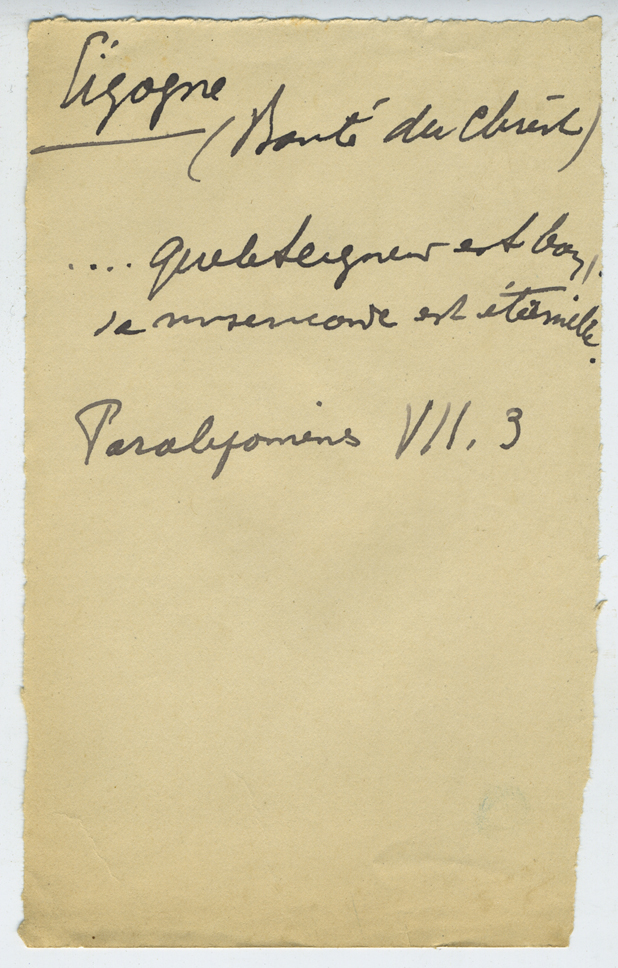 Cigogne
(Bonté du Christ)
.... que le Seigneur est bon,
sa misericorde est éternelle.
Paralipomens VII. 3